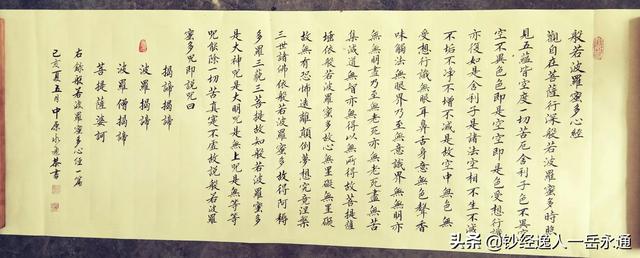 般若波羅蜜多心經
觀自在菩薩行深般若波羅蜜多時照
見五蘊皆空度一切苦厄舍利子色不異空
空不異色色即是空空即是色受想行識
亦復如是舍利子是諸法空相不生不滅
不垢不淨不增不減是故空中無色無
受想行識無眼耳鼻舌身意無色聲香
味觸法無眼界乃至無意識界無無明亦
無無明盡乃至無老死亦無老死盡無苦
集滅道無智亦無得以無所得故菩提薩
埵依般若波羅蜜多故心無罣礙無罣礙
故無有恐怖遠離顛倒夢想究竟涅槃
三世諸佛依般若波羅蜜多故得阿耨
多羅三藐三菩提故知般若波羅蜜多
是大神咒是大明咒是無上咒是無等等
咒能除一切苦真實不虛故說般若波羅
蜜多咒即說咒曰
揭諦揭諦
波羅揭諦
波羅僧揭諦
菩提薩婆訶
右錄般若波羅蜜多心經一篇
己亥夏五月中原永通恭書
头条 @钞经逸人一岳永通